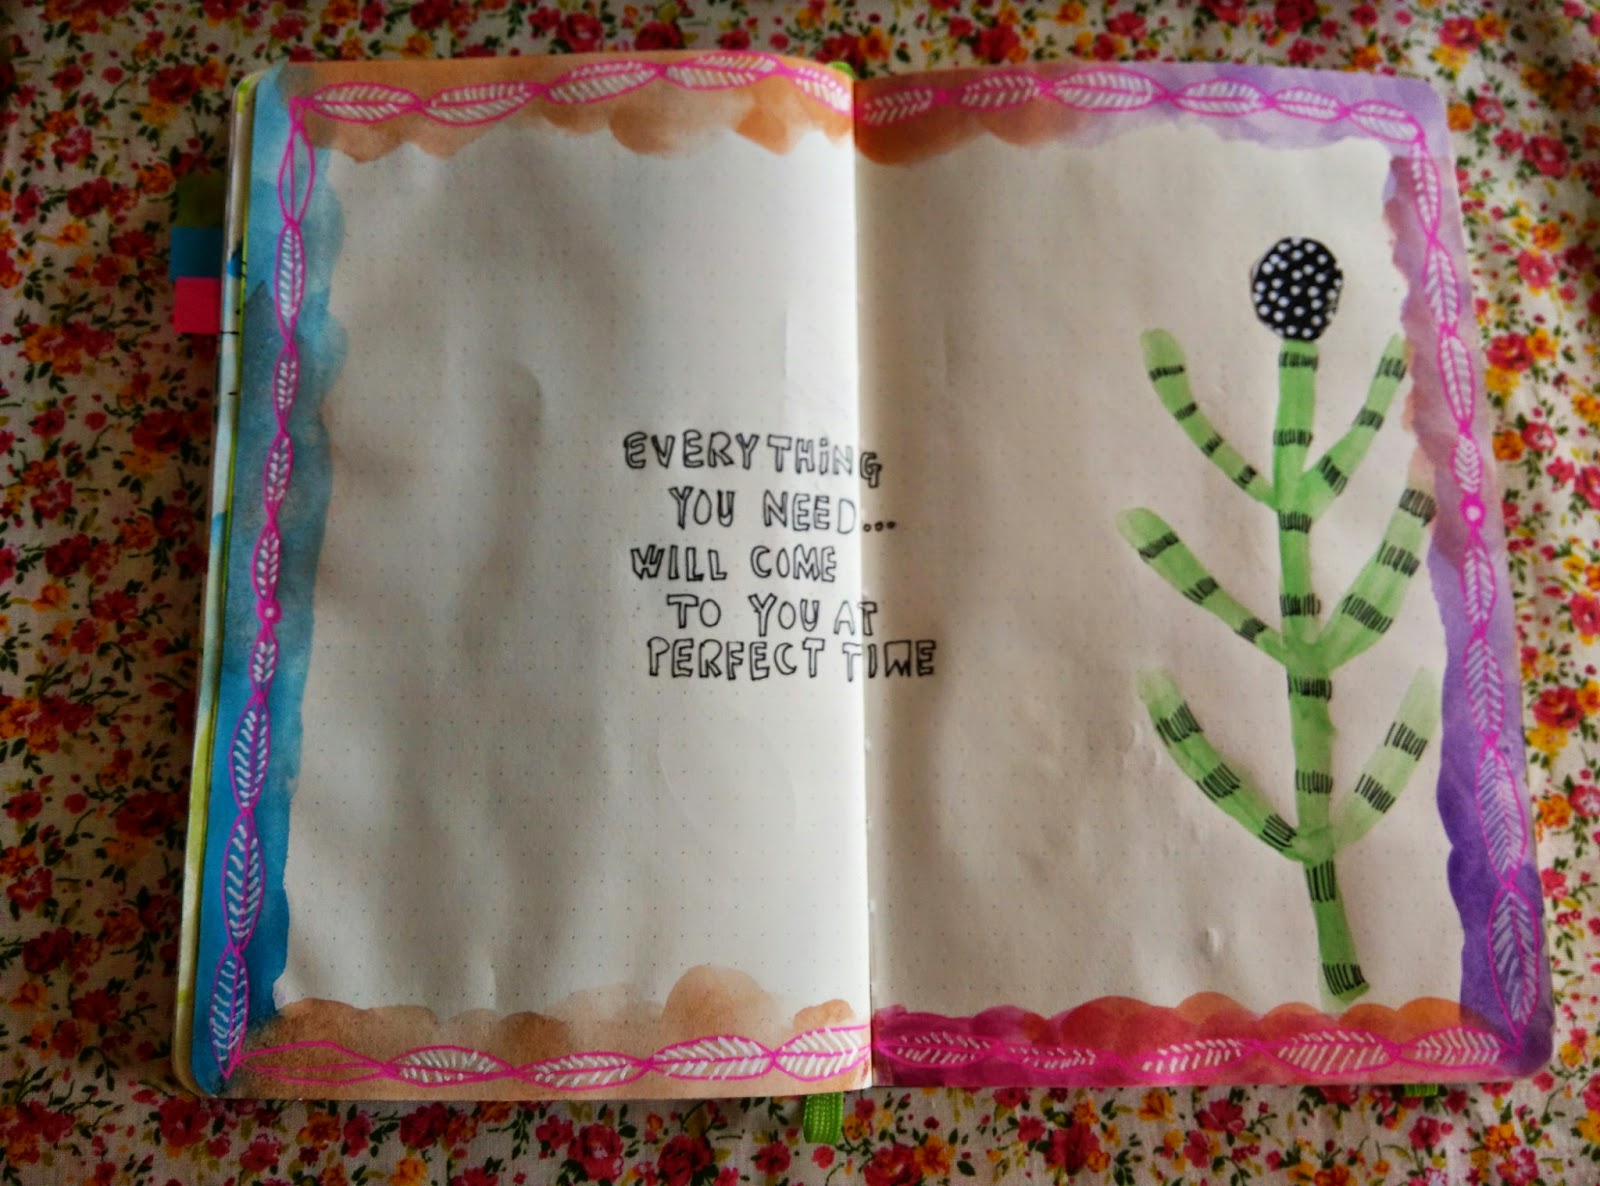 EVERYTHiNG
YOU NEED...
WILL COME
TO YOU AT
PERFECT TIME